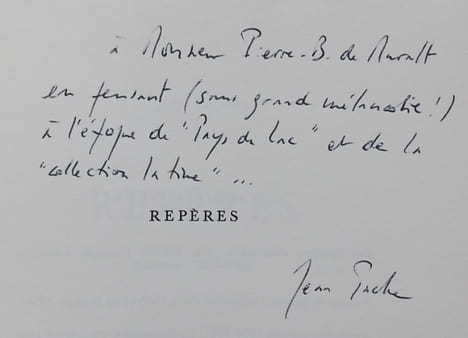 à Monsieur Pierre-B. de Muralt
en pensant (sans grande mélancolie!)
à l'époque de "Pays du Lac" et de la
"collection " ...
REPÈRES
Jean Pache